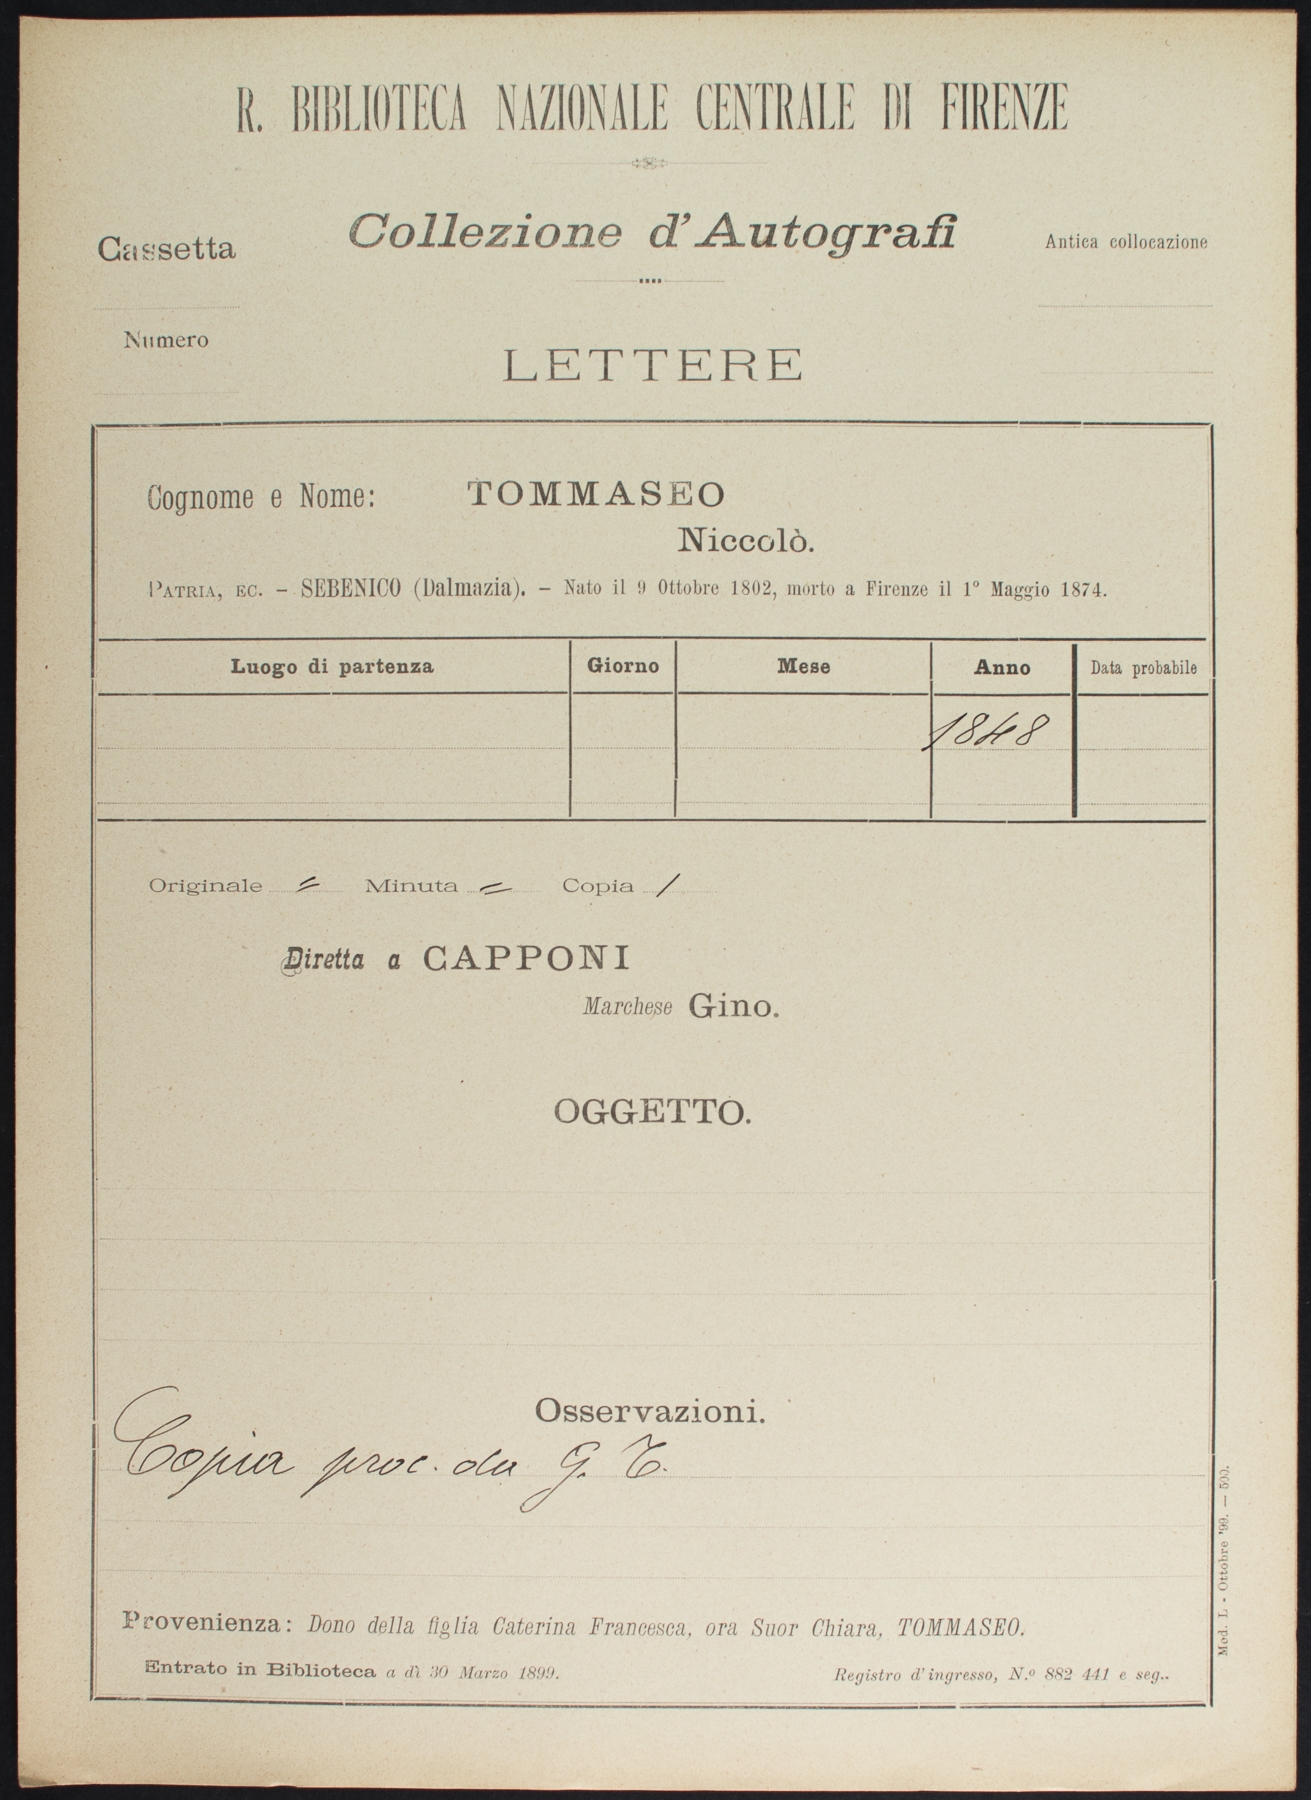 R. BIBLIOTECA NAZIONALE CENTRALE DI FIRENZE
Collezione d'Autografi
Cassetta
Antica collocazione
Numero
LETTERE
Cognome e Nome: TOMMASEO
Niccolò.
PATRIA, EC. – SEBENICO (Dalmazia). – Nato il 9 Ottobre 1802, morto a Firenze il 1º Maggio 1874.
Luogo di partenza Giorno Mese Anno Data probabile
1848
Originale = Minuta = Copia /
Diretta a CAPPONI
Marchese Gino.
OGGETTO.
Osservazioni.
Copia proc. da G. T.
Provenienza: Dono della figlia Caterina Francesca, ora Suor Chiara, TOMMASEO.
Entrato in Biblioteca a dì 30 Marzo 1899. Registro d'ingresso, N.º 882 441 e seg..
Mod. L - Ottobre '99. — 500.